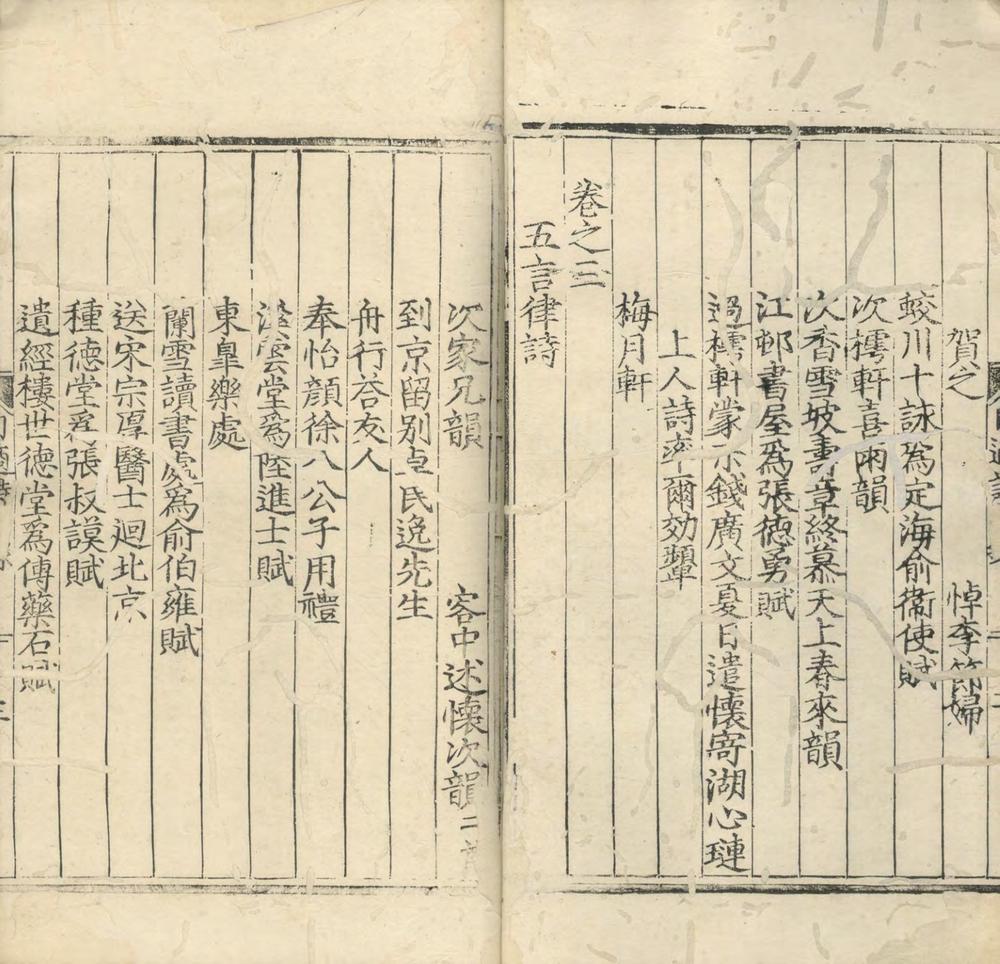 賀之　悼李節婦
蛟川十詠爲定海俞衞使賦
次樗軒喜雨韻
次香雪坡壽章終慕天上春來韻
江邨書屋爲張德勇賦
過樗軒蒙示錢廣文夏日遣懷寄湖心璉
上人詩率爾効顰
梅月軒
卷之三
五言律詩
次家兄韻　客中述懷次韻二首
到京留別卓民逸先生
舟行答友人
奉怡顔徐八公子用禮
雲堂爲陸進士賦
東臯樂處
闌雪讀書處爲俞伯雍賦
送宋宗厚醫士迴北京
種德堂爲張叔謨賦
遺經樓世德堂爲傳藥石賦